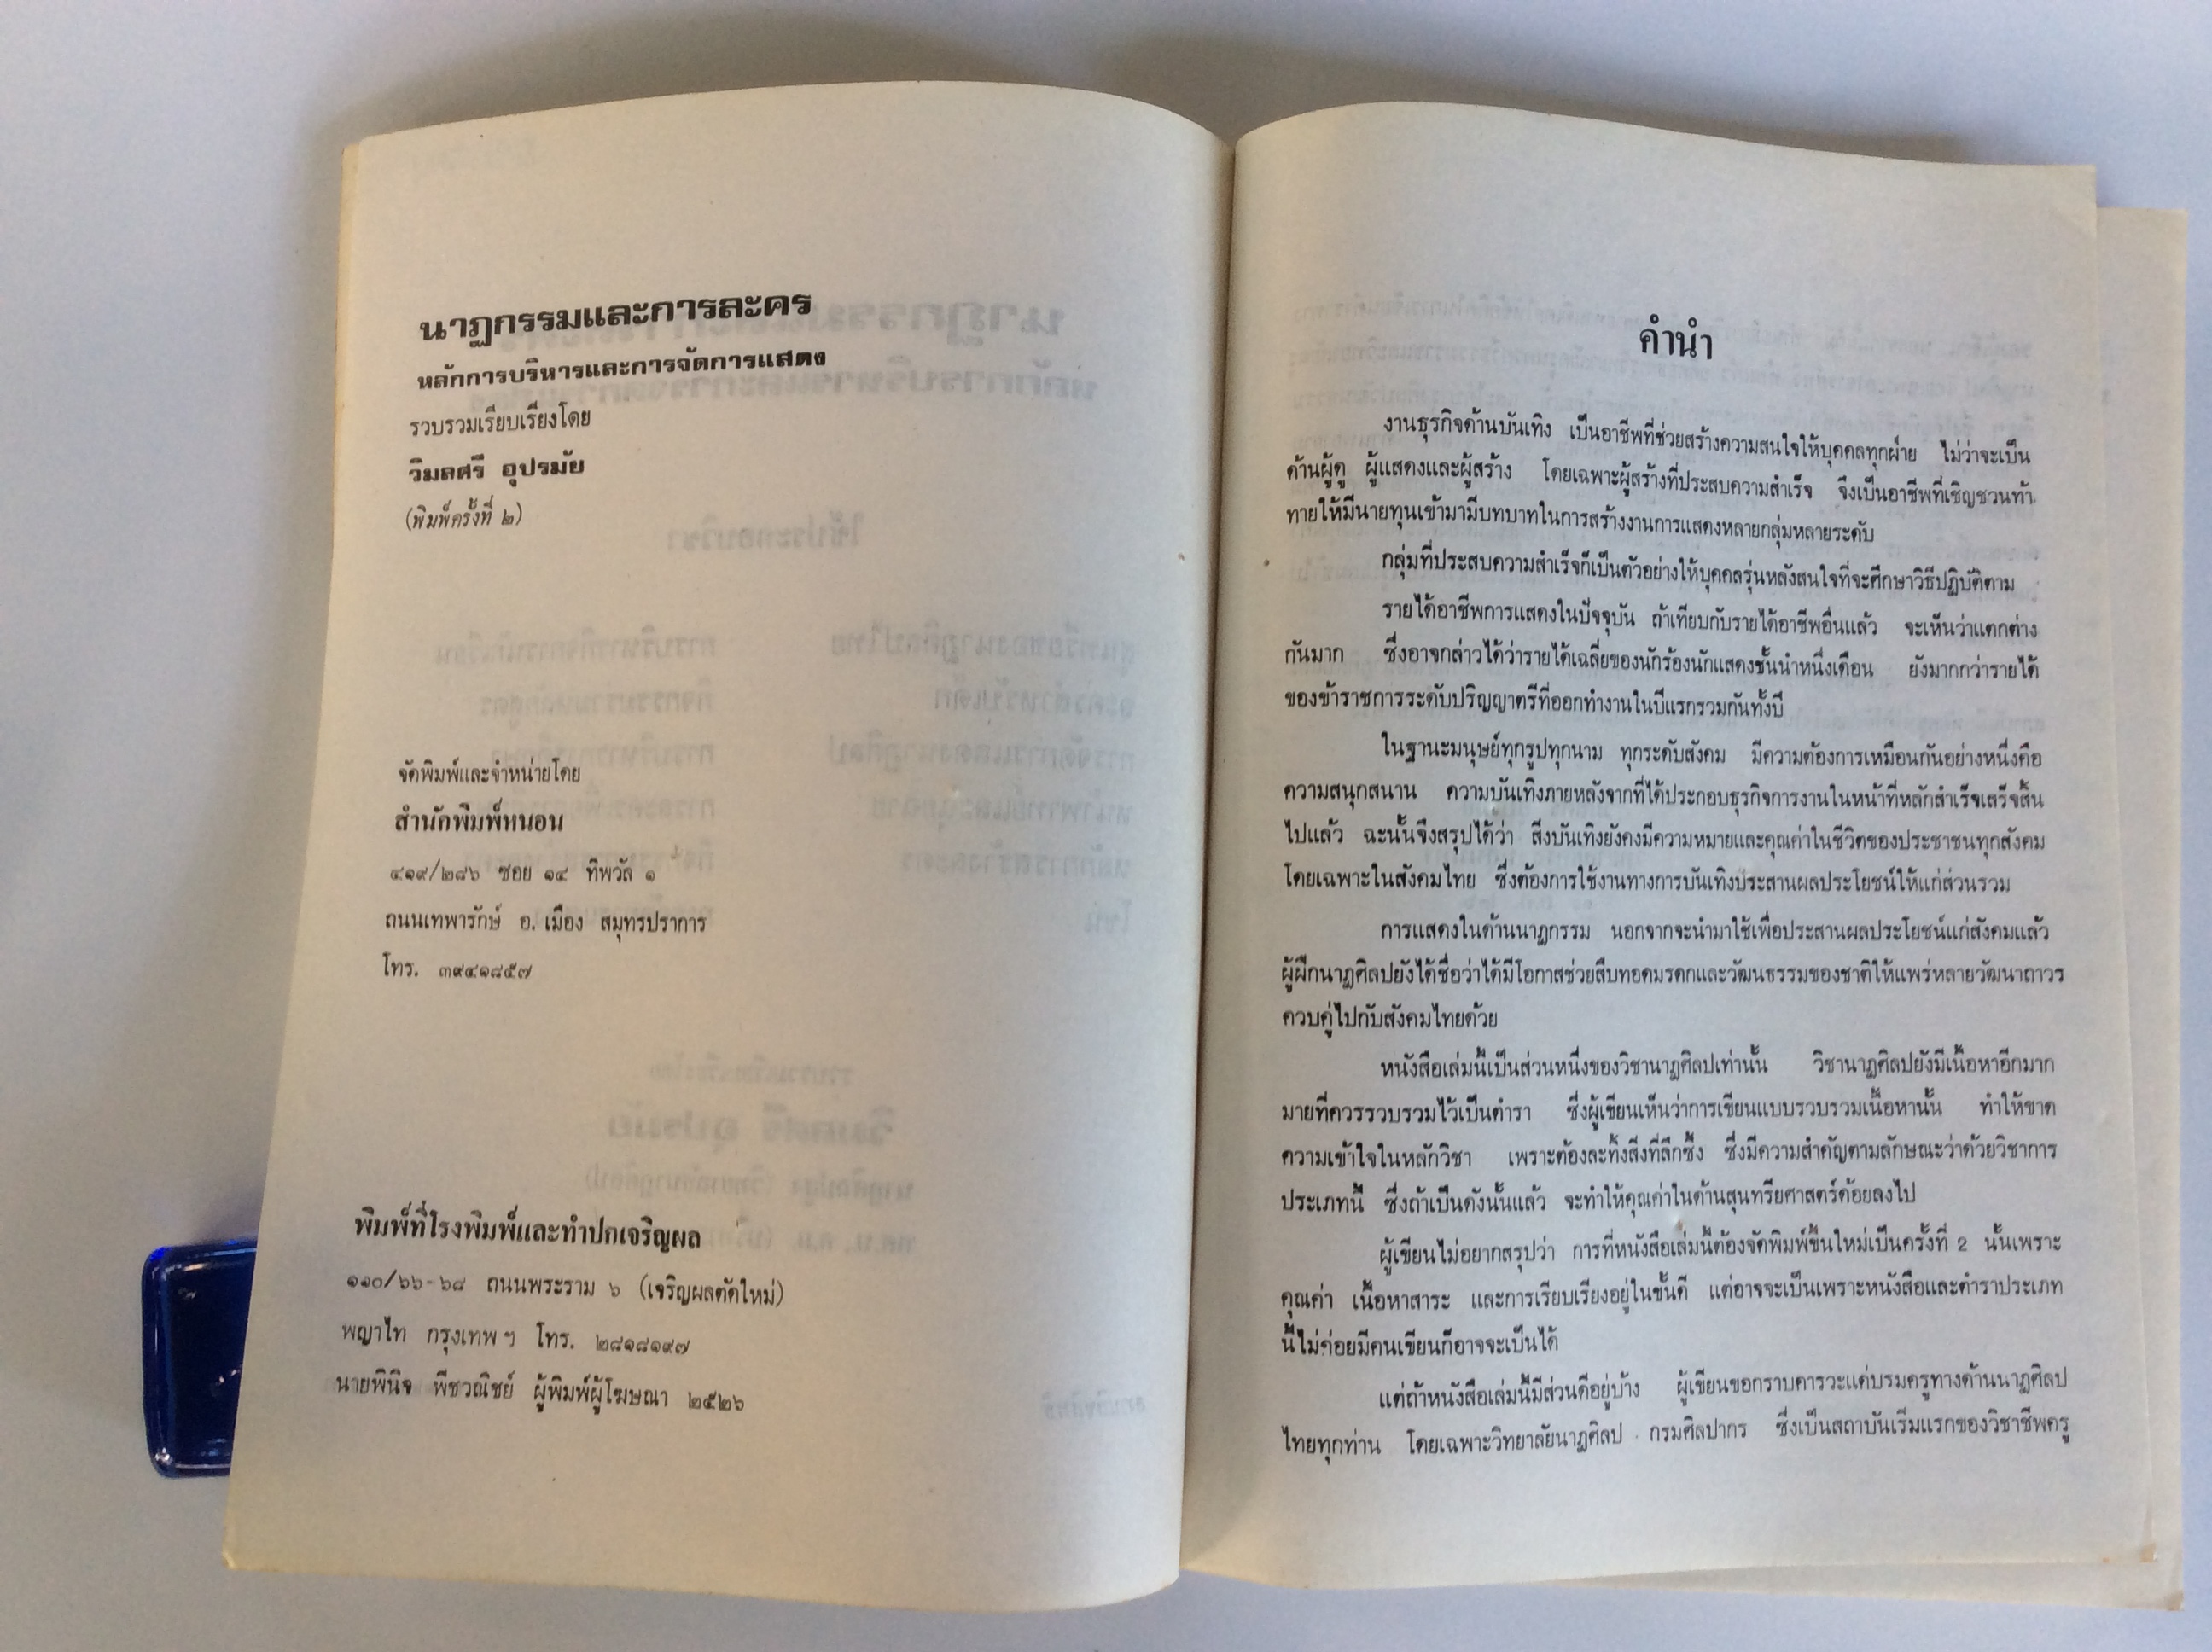 นาฏกรรมและการละคร
หลักการบริหารและการจัดการแสดง
รวบรวมเรียบเรียงโดย
วิมลศรี อุปรมัย
(พิมพ์ครั้งที่ ๒)
จัดพิมพ์และจำหน่ายโดย
สำนักพิมพ์หนอน
๔๑๙/๒๘๖ ซอย ๑๔ ทิพวัล ๑
ถนนเทพารักษ์ อ. เมือง สมุทรปราการ
โทร. ๓๙๔๑๘๕๗
พิมพ์ที่โรงพิมพ์และทำปกเจริญผล
๑๑๐/๖๖-๖๘ ถนนพระราม ๖ (เจริญผลตัดใหม่)
พญาไท กรุงเทพ ฯ โทร. ๒๘๑๘๑๙๗
นายพินิจ พืชวณิชย์ ผู้พิมพ์ผู้โฆษณา ๒๕๒๖
คำนำ
งานธุรกิจด้านบันเทิง เป็นอาชีพที่ช่วยสร้างความสนใจให้บุคคลทุกฝ่าย ไม่ว่าจะเป็น
ด้านผู้ดู ผู้แสดงและผู้สร้าง โดยเฉพาะผู้สร้างที่ประสบความสำเร็จ จึงเป็นอาชีพที่เชิญชวนท้า
ทายให้มีนายทุนเข้ามามีบทบาทในการสร้างงานการแสดงหลายกลุ่มหลายระดับ
กลุ่มที่ประสบความสำเร็จก็เป็นตัวอย่างให้บุคคลรุ่นหลังสนใจที่จะศึกษาวิธีปฏิบัติตาม
รายได้อาชีพการแสดงในปัจจุบัน ถ้าเทียบกับรายได้อาชีพอื่นแล้ว จะเห็นว่าแตกต่าง
กันมาก ซึ่งอาจกล่าวได้ว่ารายได้เฉลี่ยของนักร้องนักแสดงชั้นนำหนึ่งเดือน ยังมากกว่ารายได้
ของข้าราชการระดับปริญญาตรีที่ออกทำงานในปีแรกรวมกันทั้งปี
ในฐานะมนุษย์ทุกรูปทุกนาม ทุกระดับสังคม มีความต้องการเหมือนกันอย่างหนึ่งคือ
ความสนุกสนาน ความบันเทิงภายหลังจากที่ได้ประกอบธุรกิจการงานในหน้าที่หลักสำเร็จเสร็จสิ้น
ไปแล้ว ฉะนั้นจึงสรุปได้ว่า สิ่งบันเทิงยังคงมีความหมายและคุณค่าในชีวิตของประชาชนทุกสังคม
โดยเฉพาะในสังคมไทย ซึ่งต้องการใช้งานทางการบันเทิงประสานผลประโยชน์ให้แก่ส่วนรวม
การแสดงในด้านนาฏกรรม นอกจากจะนำมาใช้เพื่อประสานผลประโยชน์แก่สังคมแล้ว
ผู้ฝึกนาฏศิลปยังได้ชื่อว่าได้มีโอกาสช่วยสืบทอดมรดกและวัฒนธรรมของชาติให้แพร่หลายวัฒนาถาวร
ควบคู่ไปกับสังคมไทยด้วย
หนังสือเล่มนี้เป็นส่วนหนึ่งของวิชานาฏศิลปเท่านั้น วิชานาฏศิลปยังมีเนื้อหาอีกมาก
มายที่ควรรวบรวมไว้เป็นตำรา ซึ่งผู้เขียนเห็นว่าการเขียนแบบรวบรวมเนื้อหานั้น ทำให้ขาด
ความเข้าใจในหลักวิชา เพราะต้องละทิ้งสิ่งที่ลึกซึ้ง ซึ่งมีความสำคัญตามลักษณะว่าด้วยวิชาการ
ประเภทนี้ ซึ่งถ้าเป็นดังนั้นแล้ว จะทำให้คุณค่าในด้านสุนทรียศาสตร์ด้อยลงไป
ผู้เขียนไม่อยากสรุปว่า การที่หนังสือเล่มนี้ต้องจัดพิมพ์ขึ้นใหม่เป็นครั้งที่ 2 นั้นเพราะ
คุณค่า เนื้อหาสาระ และการเรียบเรียงอยู่ในขั้นดี แต่อาจจะเป็นเพราะหนังสือและตำราประเภท
นี้ไม่ค่อยมีคนเขียนก็อาจจะเป็นได้
แต่ถ้าหนังสือเล่มนี้มีส่วนดีอยู่บ้าง ผู้เขียนขอกราบคารวะแด่บรมครูทางด้านนาฏศิลป
ไทยทุกท่าน โดยเฉพาะวิทยาลัยนาฏศิลป กรมศิลปากร ซึ่งเป็นสถาบันเริ่มแรกของวิชาชีพครู